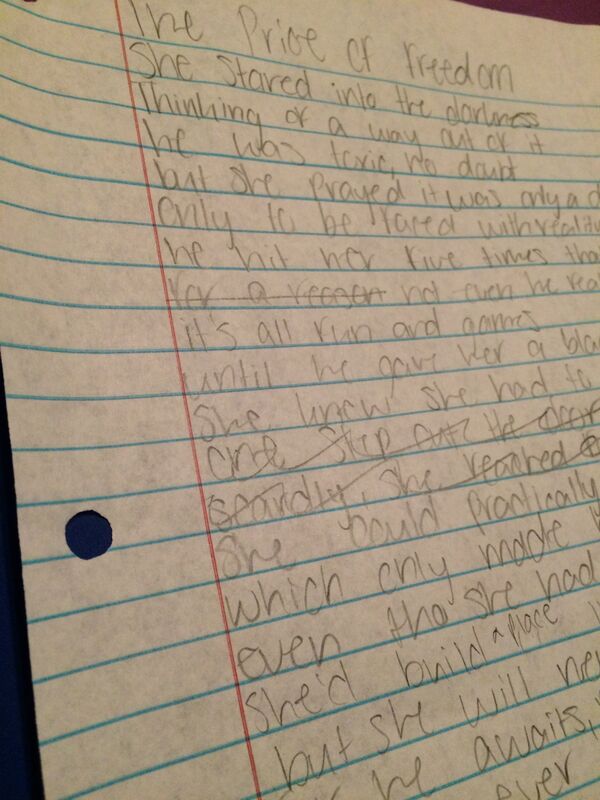 The Price of Freedom
She stared into the darkness
Thinking of a way out of it
he was toxic, no doubt
but she prayed it was only a d
only to be faced with reality
he hit her five times tha
for a reason not even he rea
it's all fun and games
until he gave her a bla
She knew she had to
one step out the door
she reached
She could practically
which only made h
even tho she had
she'd build a place
but she will ne
he awaits,
ever